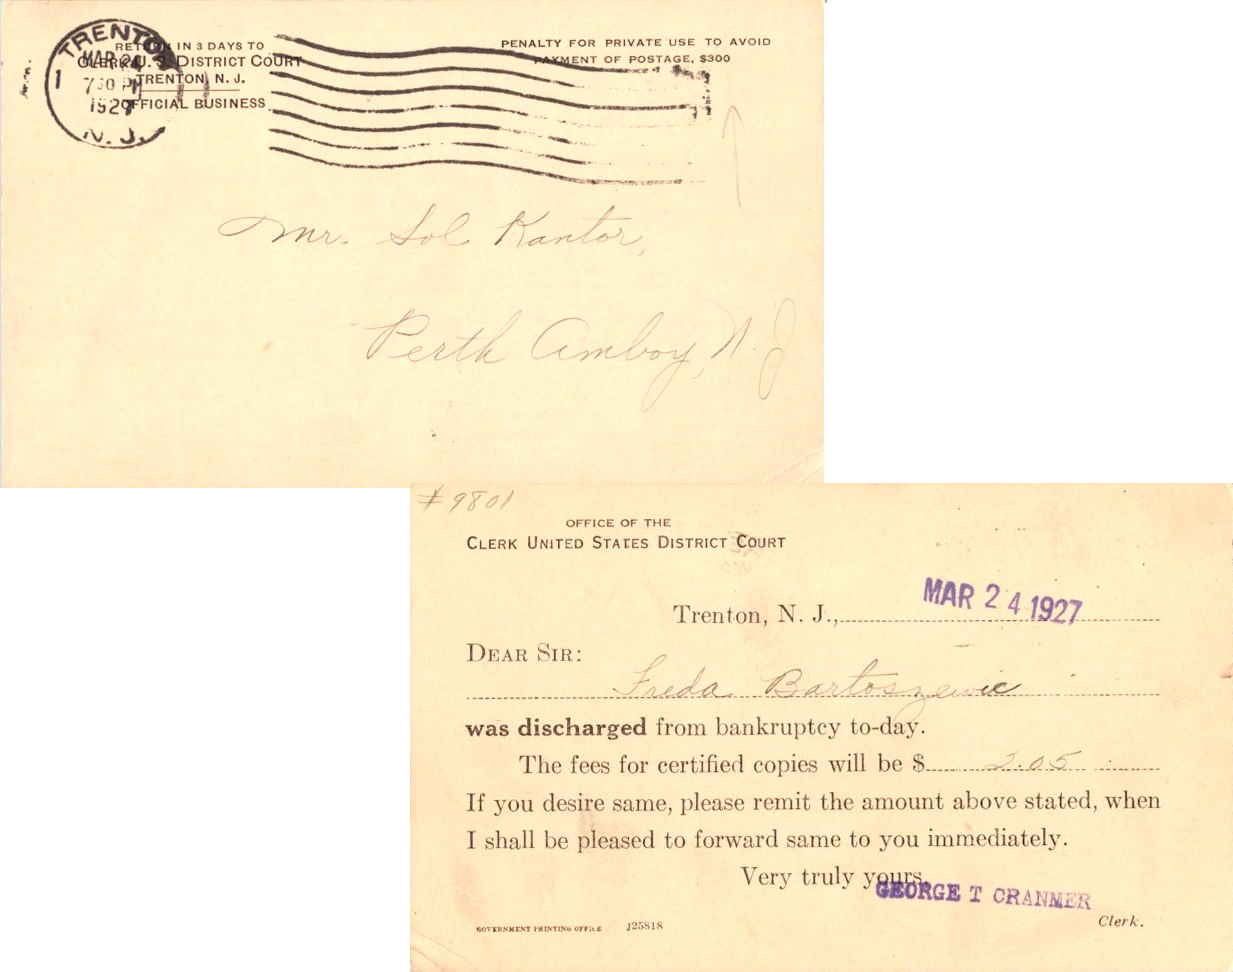 TRENTON
N. J.
MAR 24
7 30 PM
1927
1
RETURN IN 3 DAYS TO
CLERK U. S. DISTRICT COURT
TRENTON, N. J.
OFFICIAL BUSINESS
PENALTY FOR PRIVATE USE TO AVOID
PAYMENT OF POSTAGE, $300
Mr. Sol Kantor,
Perth Amboy, N. J
# 9801
OFFICE OF THE
CLERK UNITED STATES DISTRICT COURT
MAR 24 1927
Trenton, N. J.,
DEAR SIR:
Freda Bartoszewic
was discharged from bankruptcy to-day.
The fees for certified copies will be $ 2.05
If you desire same, please remit the amount above stated, when
I shall be pleased to forward same to you immediately.
Very truly yours,
GEORGE T CRANMER
Clerk.
GOVERNMENT PRINTING OFFICE J25818